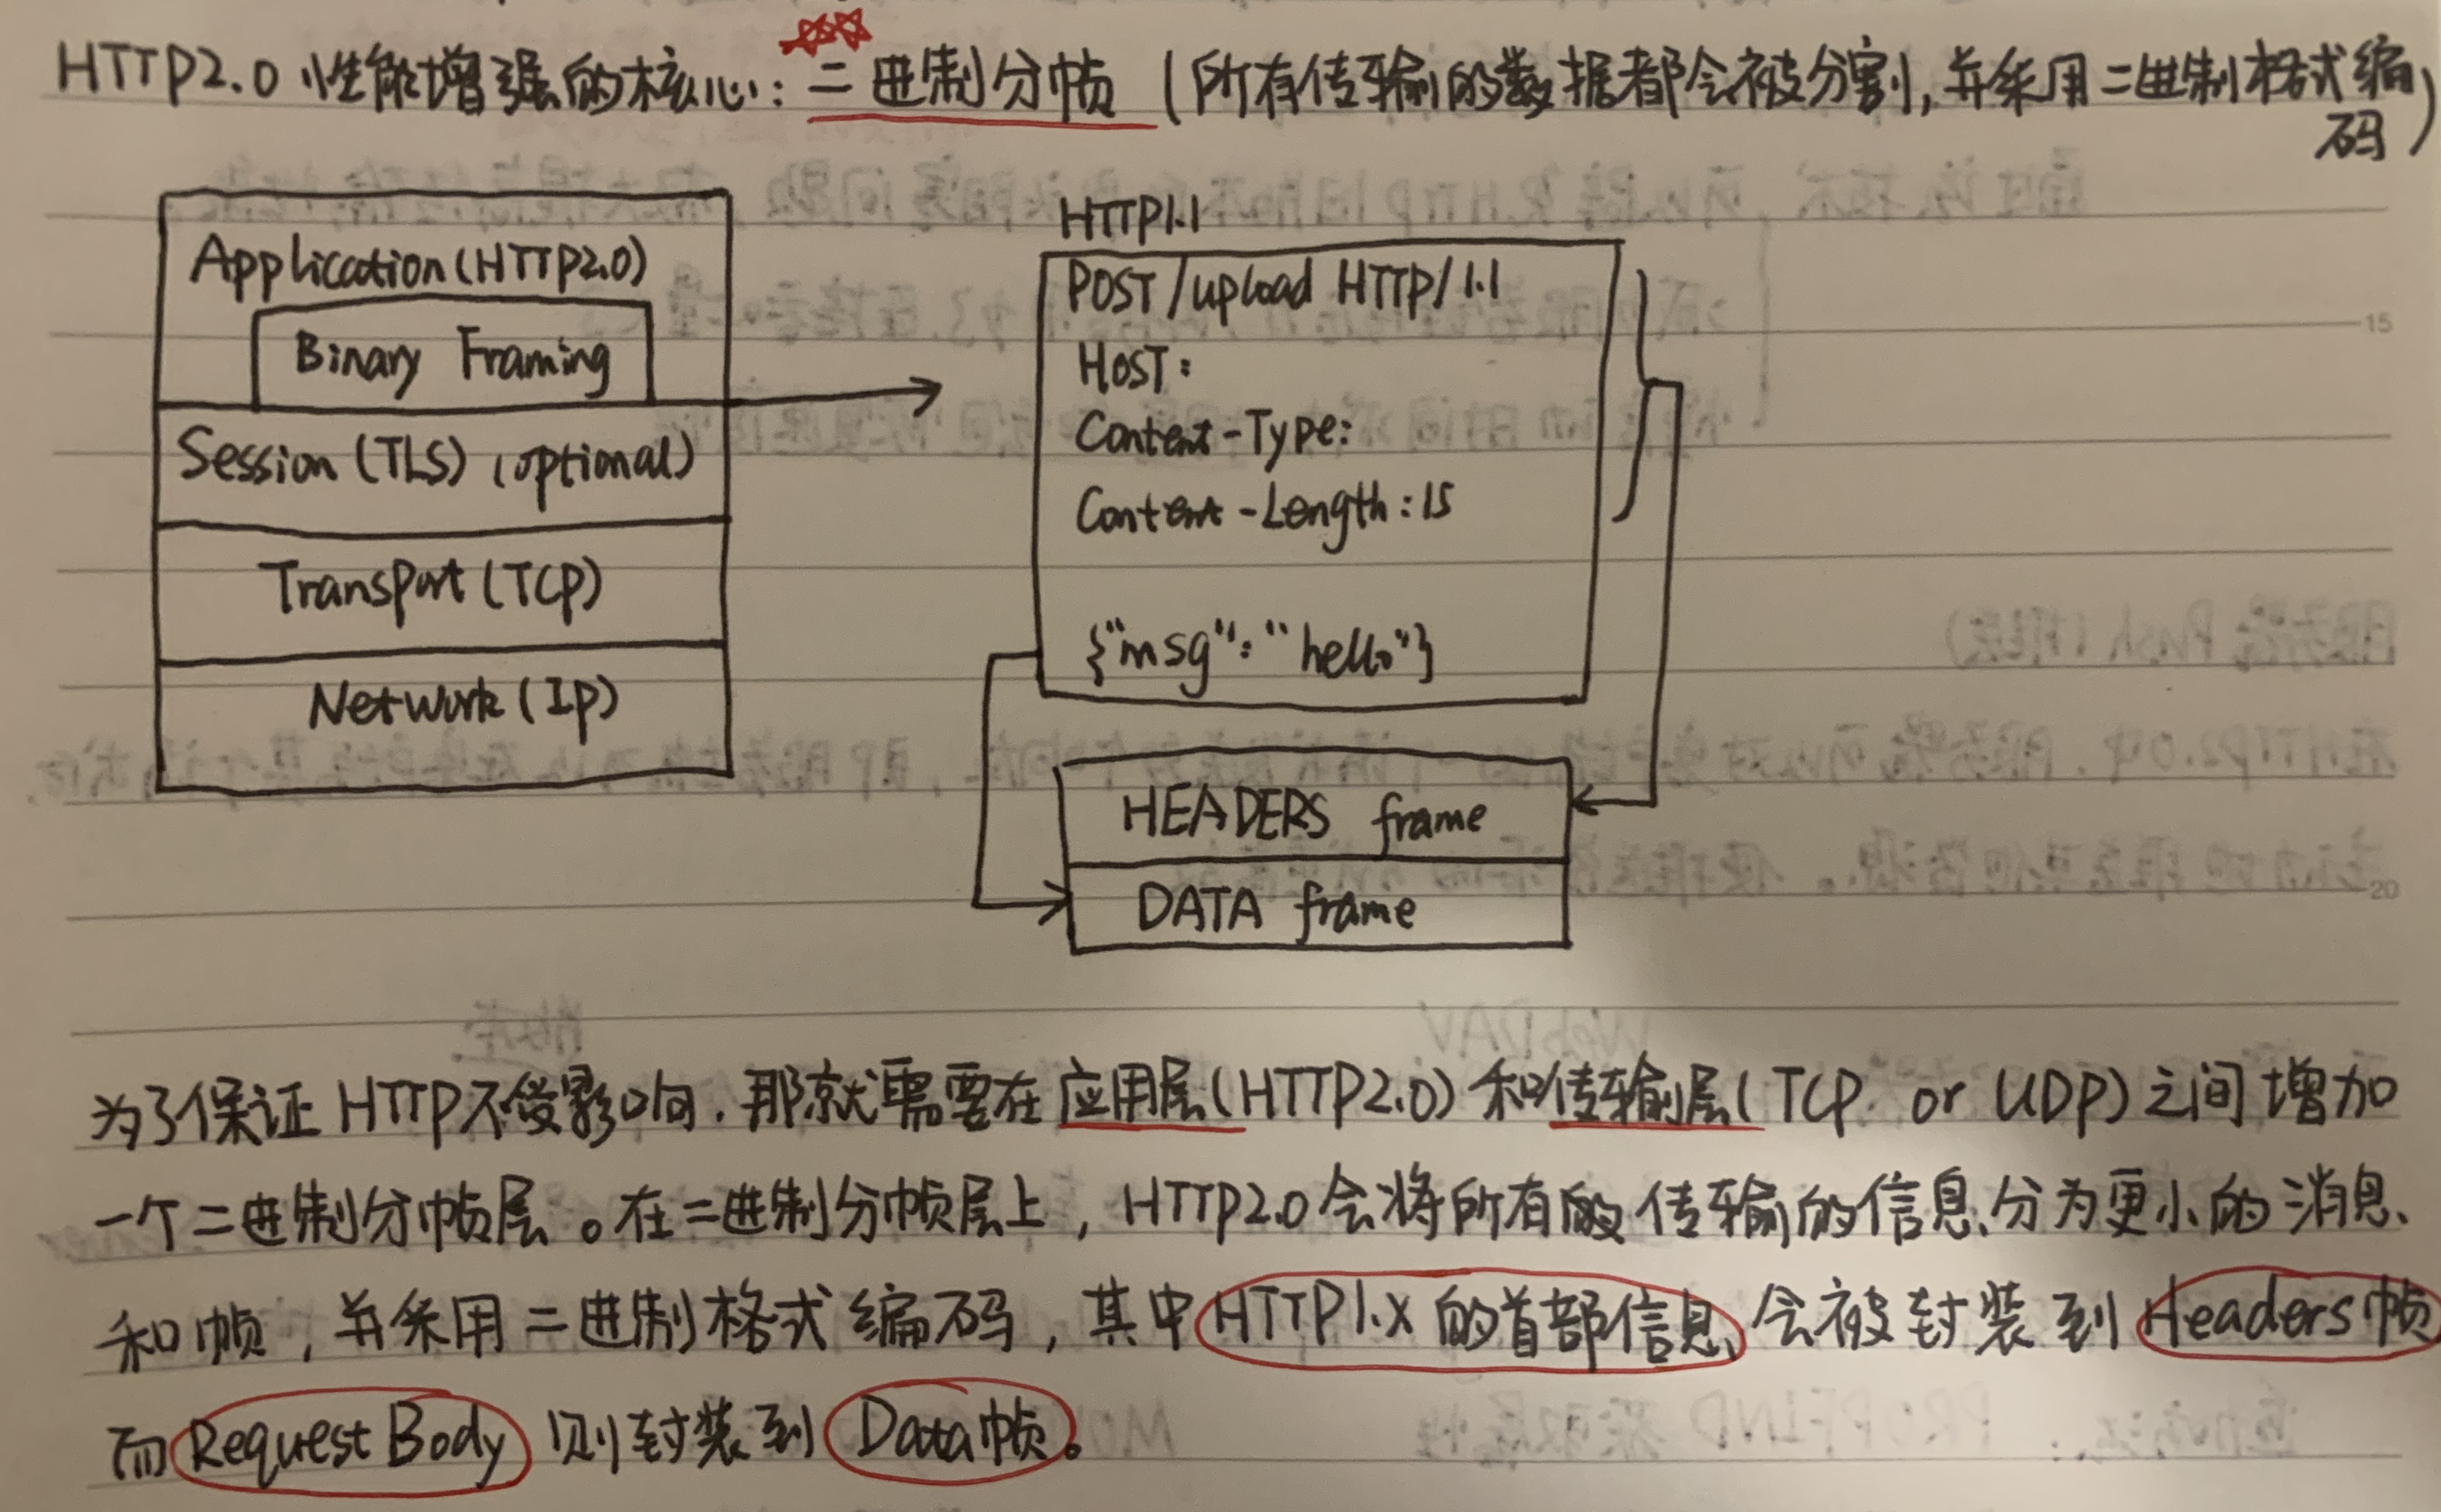 HTTP2.0 性能增强的核心：二进制分帧（所有传输的数据都会被分割，并采用二进制格式编
码）
Application(HTTP2.0)
Binary Framing
Session(TLS) (optional)
Transport(TCP)
Network(IP)
HTTP1.1
POST /upload HTTP/1.1
HOST:
Content-Type:
Content-Length:15
{"msg":"hello"}
HEADERS frame
DATA frame
为了保证HTTP不受影响，那就需要在应用层(HTTP2.0)和传输层(TCP or UDP)之间增加
一个二进制分帧层。在二进制分帧层上，HTTP2.0会将所有的传输的信息分为更小的消息
和帧，并采用二进制格式编码，其中HTTP1.X的首部信息会被封装到Headers帧
而Request Body则封装到Data帧。
15
20